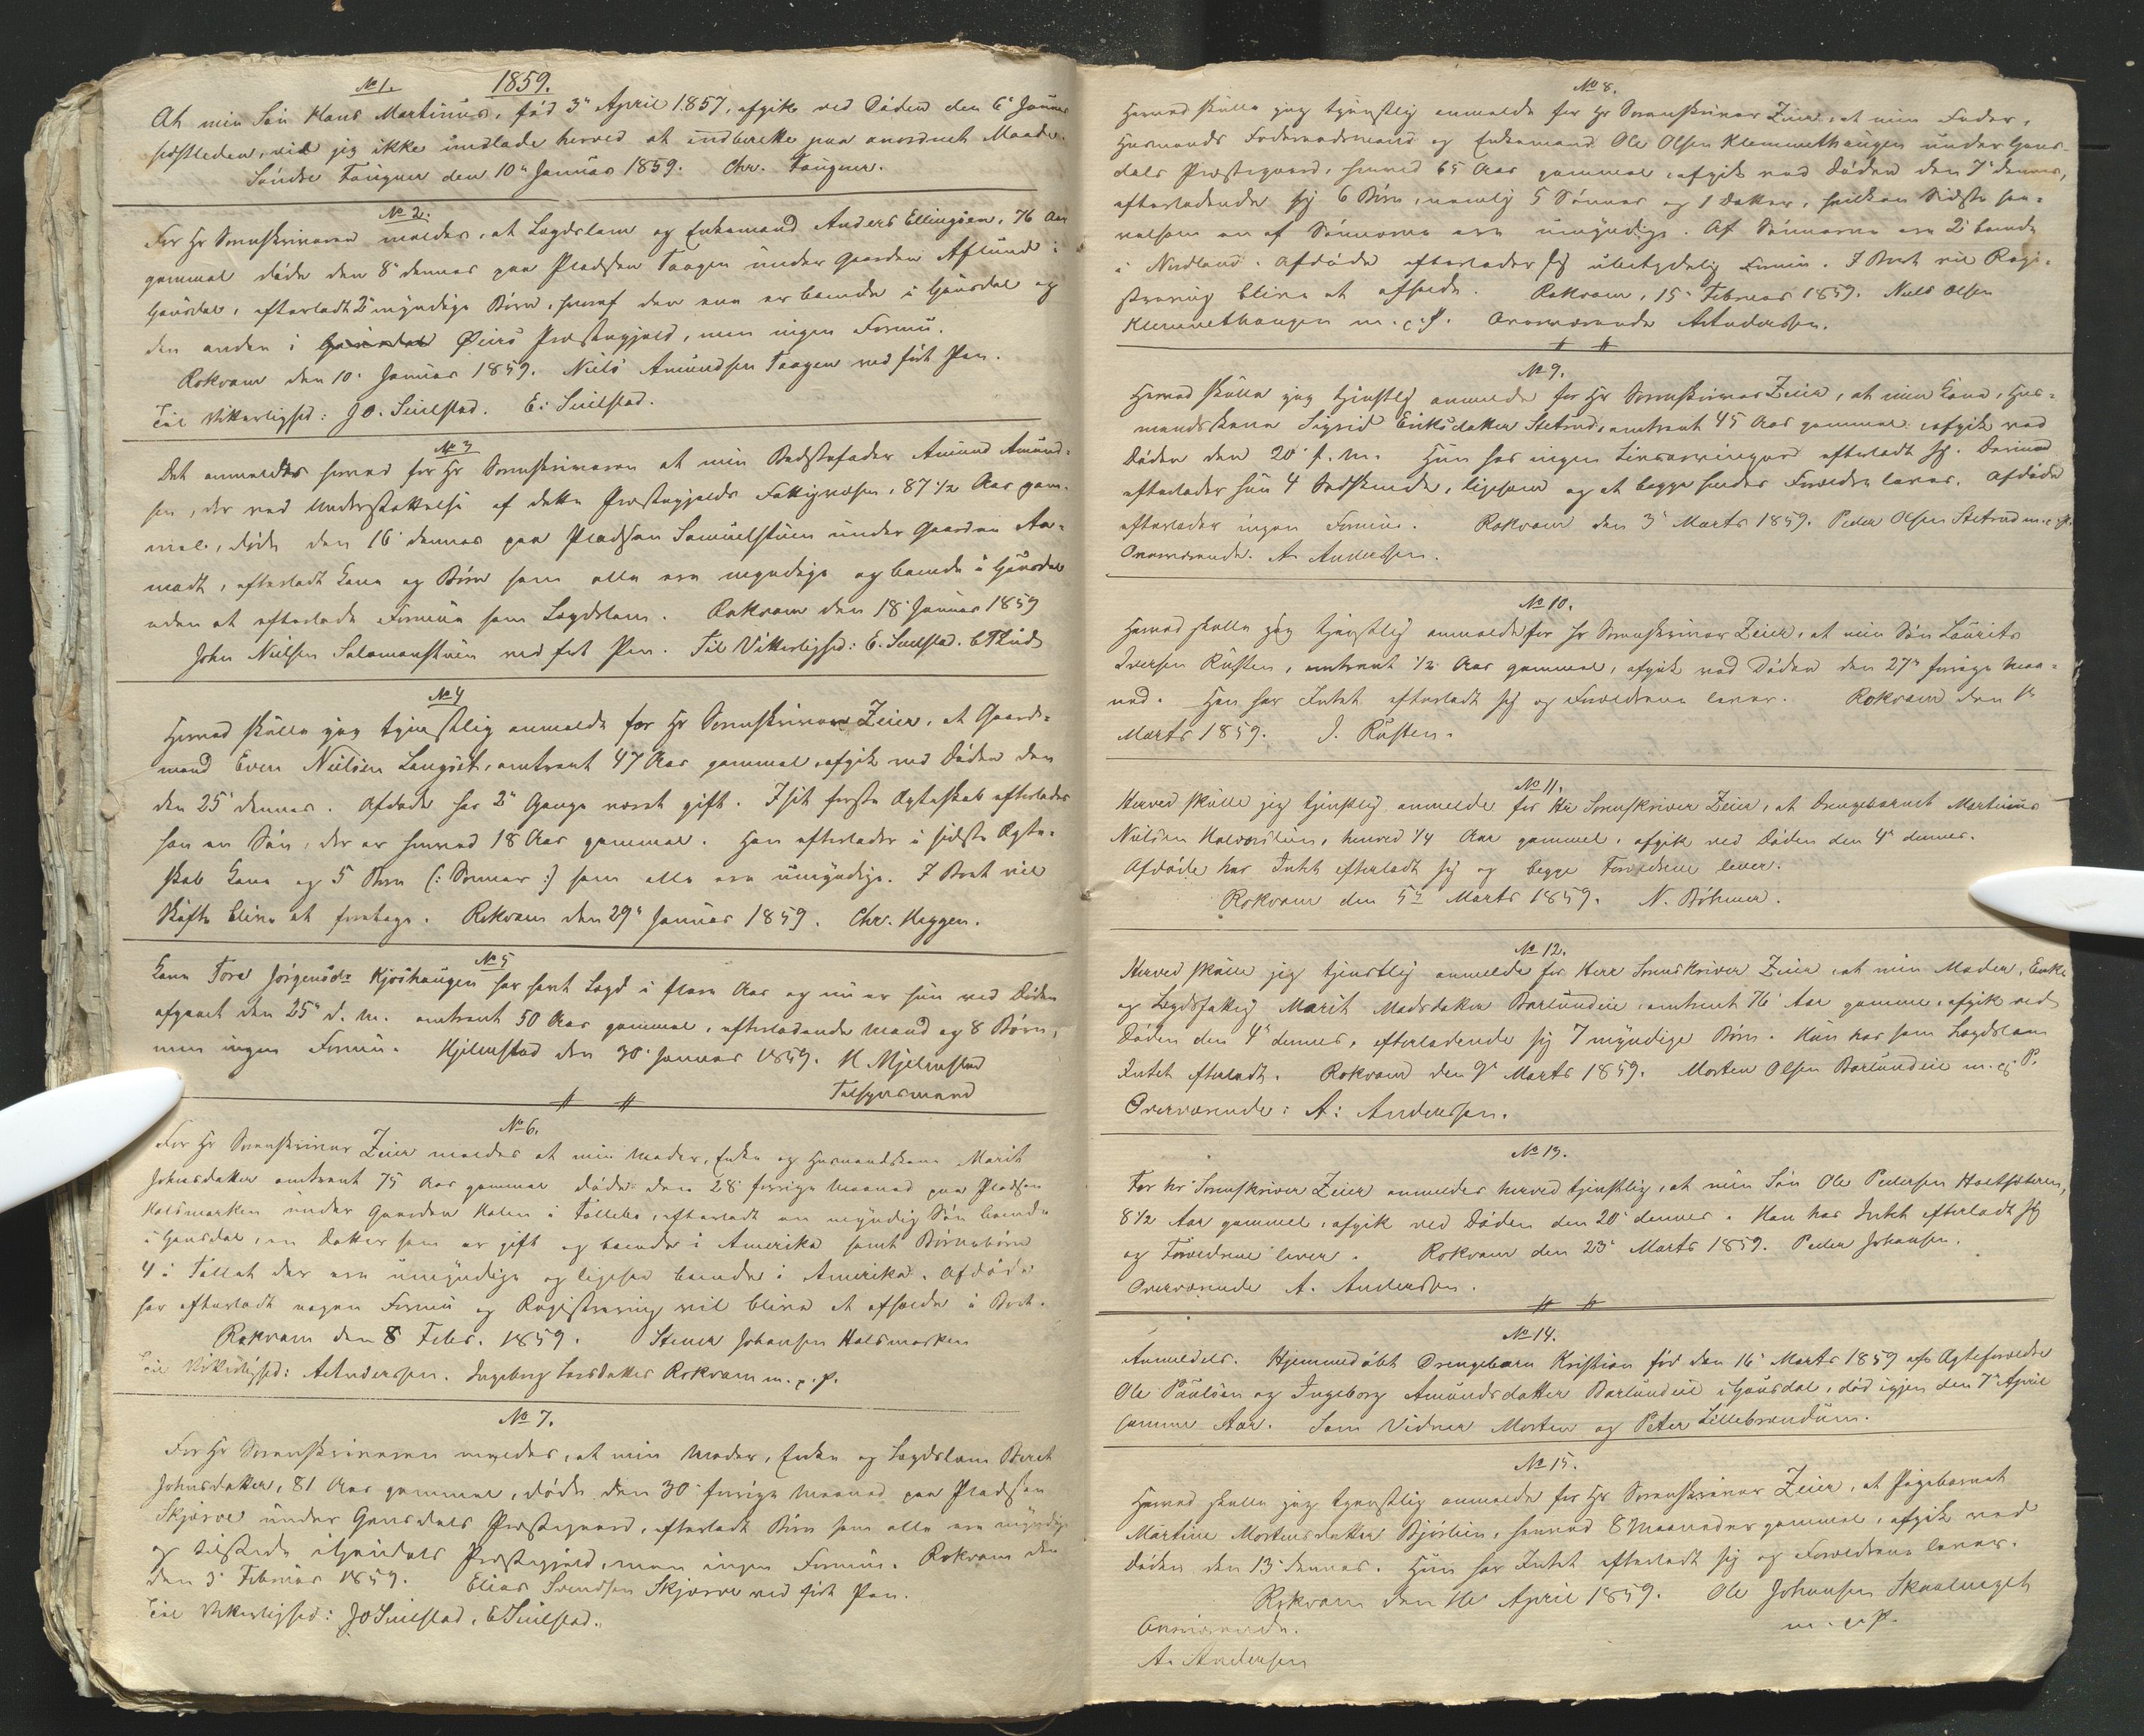 No 1. 1859.
At min Søn Hans Martinus, fød 3die April 1857, afgik ved Døden den 6te Januar
sidstleden, vil jeg ikke undlade herved at indberette paa anordnet Maade.
Søndre Faugner den 10de Januar 1859. Chr. Faugner.
No 2.
For Hr Sorenskriveren meldes, at Lægdslem og Enkemand Anders Ellingsen, 76 Aar
gammel døde den 8de dennes paa Pladsen Taagen under Gaarden Aflund i
Gausdal, efterladt 2de myndige Børn, hvoraf den ene er boende i Gausdal og
den anden i Gausdal Øiers Præstegjeld, men ingen Formue.
Rokvam den 10de Januar 1859. Niels Amundsen Taagen ved ført Pen.
Til Vitterlighed: J O. Suilstad. E. Suilstad.
No 3
Det anmeldes herved for Hr Sorenskriveren at min Bedstefader Amund Amund-
sen, der ved Understøttelse af dette Præstegjelds Fattigvæsen, 87 1/2 Aar gam-
mel, døde den 16de dennes paa Pladsen Samuelstuen under Gaarden Aa-
modt, efterladt Kone og Børn som alle ere myndige og boende i Gausdal
uden at efterlade Formue som Lægdslem. Rokvam den 18de Januar 1859
John Nielsen Salomonstuen ved ført Pen. Til Vitterlighed: E. Suilstad.
No 4
Herved skulle jeg tjenstlig anmelde for Hr Sorenskriver Zeier, at Gaard-
mand Even Nielsen Langset, omtrent 47 Aar gammel, afgik ved Døden den
den 25de dennes. Afdøde har 2de Gange været gift. I sit første Ægteskab efterlader
han en Søn, der er henved 18 Aar gammel. Han efterlader i sidste Ægte-
skab Kone og 5 Børn (: Sønner :) som alle ere umyndige. I Boet vil
Skifte blive at foretage. Rokvam den 29de Januar 1859. Chr. Heggen.
No 5
Kone Tore Jørgensdr Kjøshaugen har havt Lægd i flere Aar og nu er hun ved Døden
afgaaet den 25de d. M. omtrent 50 Aar gammel, efterladende Mand og 8 Børn,
men ingen Formue. Hjelmstad den 30te Januar 1859. H. Hjelmstad
Tilsynsmand
No 6.
For Hr Sorenskriver Zeier meldes at min Moder, Enke og Husmandskone Marit
Johnsdatter omtrent 75 Aar gammel døde den 28de forrige Maaned paa Pladsen
Holsmarken under Gaarden Holen i Follebo, efterladt en myndig Søn boende
i Gausdal, en Datter som er gift og boende i Amerika samt Børnebørn
4 i Tallet der ere umyndige og ligesaa boende i Amerika. Afdøde
har efterladt nogen Formue og Registrering vil blive at afholde i Boet.
Rokvam den 8 Febr. 1859. Stener Johansen Holsmarken
Til Vitterlighed: A Anderssen. Ingeborg Larsdatter Rokvam m. p. P.
No 7.
For Hr Sorenskriveren meldes, at min Moder, Enke og Lægdslem Beret
Johnsdatter, 81 Aar gammel, døde den 30te forrige Maaned paa Pladsen
Skjærve under Gausdals Præstegaard, efterladt Børn som alle ere myndige
og tilstede i Gausdals Præstegjeld, men ingen Formue. Rokvam den
den 3de Februar 1859. Elias Svendsen Skjærve ved ført Pen.
Til Vitterlighed: J O Suilstad, E Suilstad.
No 8.
Herved skulle jeg tjenstlig anmelde for Hr Sorenskriver Zeier, at min Fader,
Husmands Foderaadsmand og Enkemand Ole Olsen Klemmethaugen under Gaus-
dals Præstegaard, henved 65 Aar gammel, afgik ved Døden den 7de dennes,
efterladende sig 6 Børn, nemlig 5 Sønner og 1 Datter, hvilken Sidste saa-
velsom en af Sønnerne ere umyndige. Af Sønnerne ere 2de boende
i Nordland. Afdøde efterlader sig ubetydelig Formue. I Boet vil Regi-
strering blive at afholde. Rokvam, 15de Februar 1859. Niels Olsen
Klemmethaugen m. p. P. Overværende A Anderssen.
No 9.
Herved skulle jeg tjenstlig anmelde for Hr Sorenskriver Zeier, at min Kone, Hus-
mandskone Sigrid Eriksdatter Stetrud, omtrent 45 Aar gammel afgik ved
Døden den 20de f. M. Hun har ingen Livsarvinger efterladt sig. Derimod
efterlader hun 4 Sødskende, ligesom og at begge hendes Forældre lever. Afdøde
efterlader ingen Formue. Rokvam den 3de Marts 1859. Peder Olsen Stetrud m. p. P.
Overværende. A. Anderssen.
No 10.
Herved skulle jeg tjenstlig anmelde for Hr Sorenskriver Zeier, at min Søn Laurits
Iversen Rusten, omtrent 1/2 Aar gammel, afgik ved Døden den 27de forrige Maa-
ned. Han har Intet efterladt sig og Forældrene lever. Rokvam den
Marts 1859. I. Rusten.
No 11.
Herved skulle jeg tjenstlig anmelde for Hr Sorenskriver Zeier, at Drengebarnet Martinus
Nielsen Halvorslien, henved 1/4 Aar gammel, afgik ved Døden den 4de dennes.
Afdøde har Intet efterladt sig og begge Forældrene lever.
Rokvam den 5te Marts 1859. N. Böhmer.
No 12.
Herved skulle jeg tjenstlig anmelde for Herr Sorenskriver Zeier, at min Moder, Enke
og Lægdsfattig Marit Madsdatter Barlundeie, omtrent 76 Aar gammel, afgik ved
Døden den 4de dennes, efterladende sig 7 myndige Børn. Hun har som Lægdslem
Intet efterladt. Rokvam den 9de Marts 1859. Morten Olsen Barlundeie m. p. P.
Overværende: A: Anderssen.
No 13.
For Hr Sorenskriver Zeier anmeldes herved tjenstlig, at min Søn Ole Pedersen Holtsæteren,
8 1/2 Aar gammel, afgik ved Døden den 20de dennes. Han har Intet efterladt sig
og Forældrene lever. Rokvam den 23de Marts 1859. Peder Johansen.
Overværende A. Anderssen.
No 14.
Anmeldels. Hjemmedøbt Drengebarn Kristian fød den 16de Marts 1859 af Ægteforældre
Ole Paulsen og Ingeborg Amundsdatter Barlundeie i Gausdal, død igjen den 7de April
samme Aar. Som Vidner Morten og Peter Lillebrændum.
No 15.
Herved skulle jeg tjenstlig anmelde for Hr Sorenskriver Zeier, at Pigebarnet
Martine Mortensdatter Bjørlien, henved 8 Maaneder gammel, afgik ved
Døden den 13de dennes. Hun har Intet efterladt sig og Forældrene lever.
Rokvam den 16de April 1859. Ole Johansen
m. p. P.
Overværende.
A. Anderssen